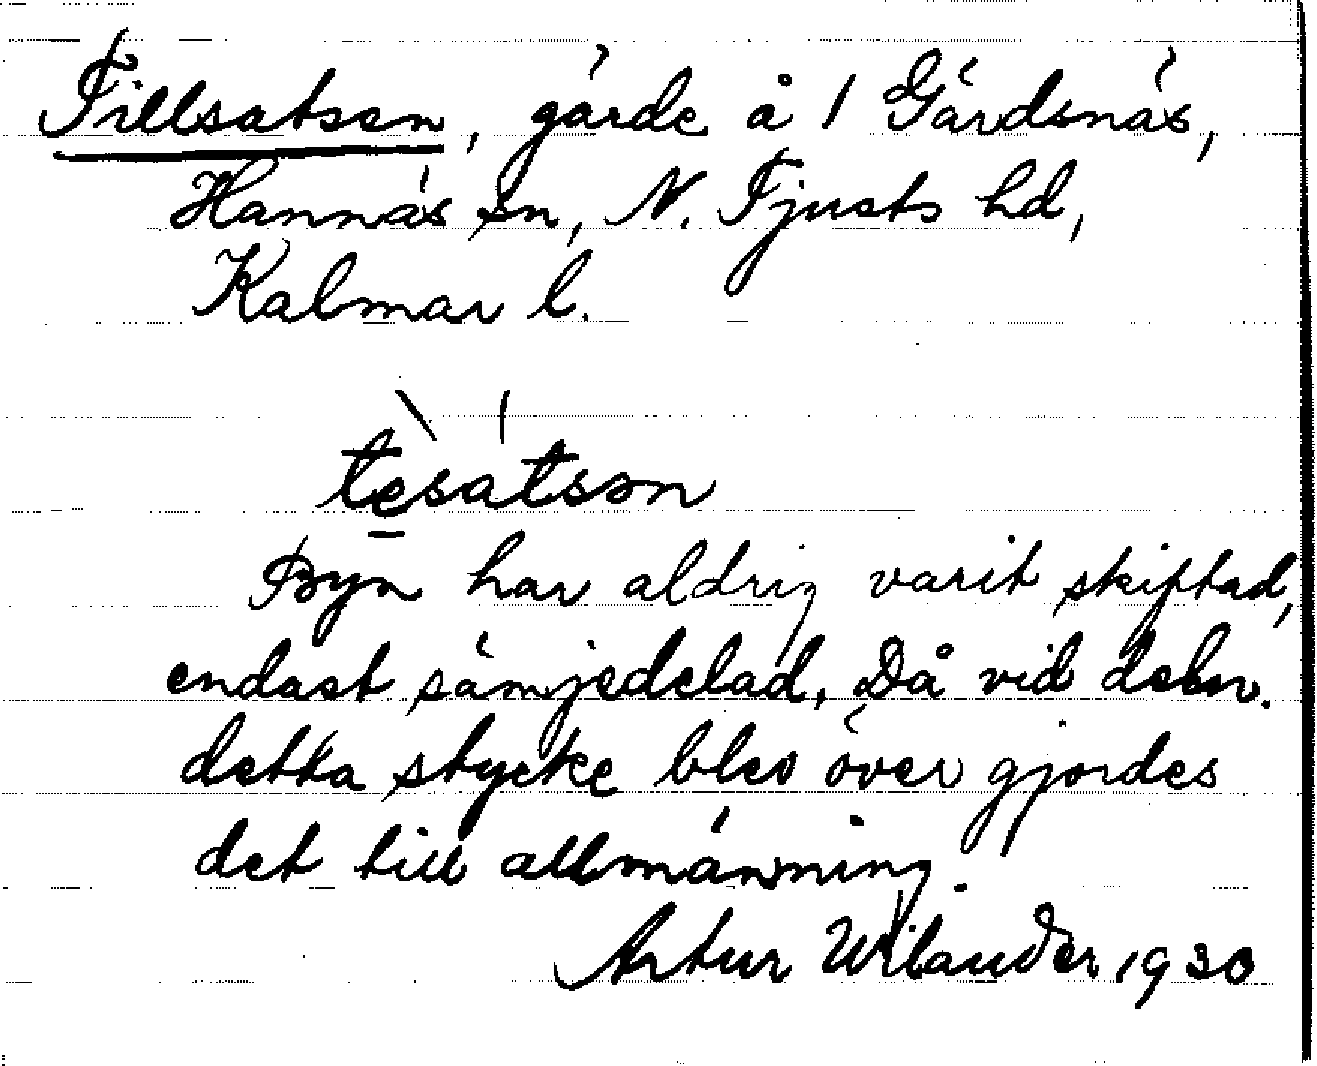 Tillsatsen, gärde å 1 Gärdsnäs,
Hannäs sn, N. Tjusts hd,
Kalmar l.
tesatsən
Byn har aldrig varit skiftad,
endast sämjedelad. Då vid deln.
detta stycke blev över gjordes
det till allmänning.
Artur Wilander 1930